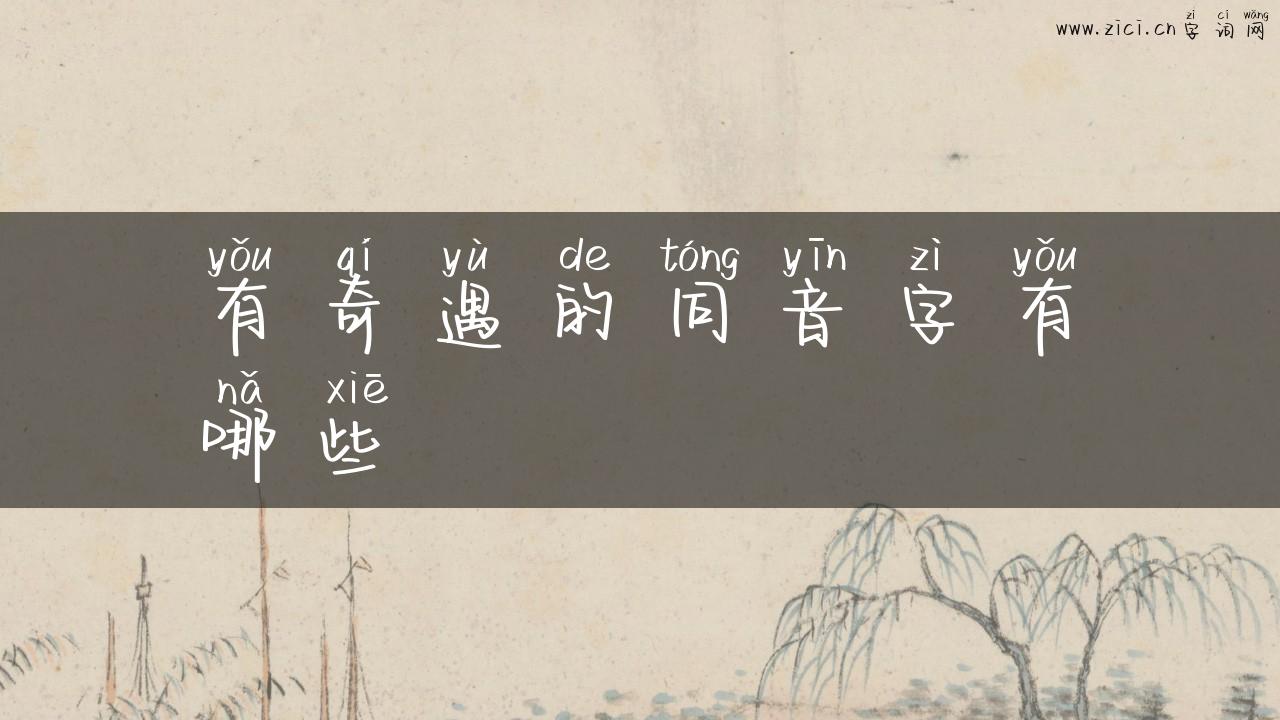 zì cí wǎng
www.zici.cn 字 词 网
yǒu qí yù de tóng yīn zì yǒu
有 奇 遇 的 同 音 字 有
nǎ xiē
哪 些